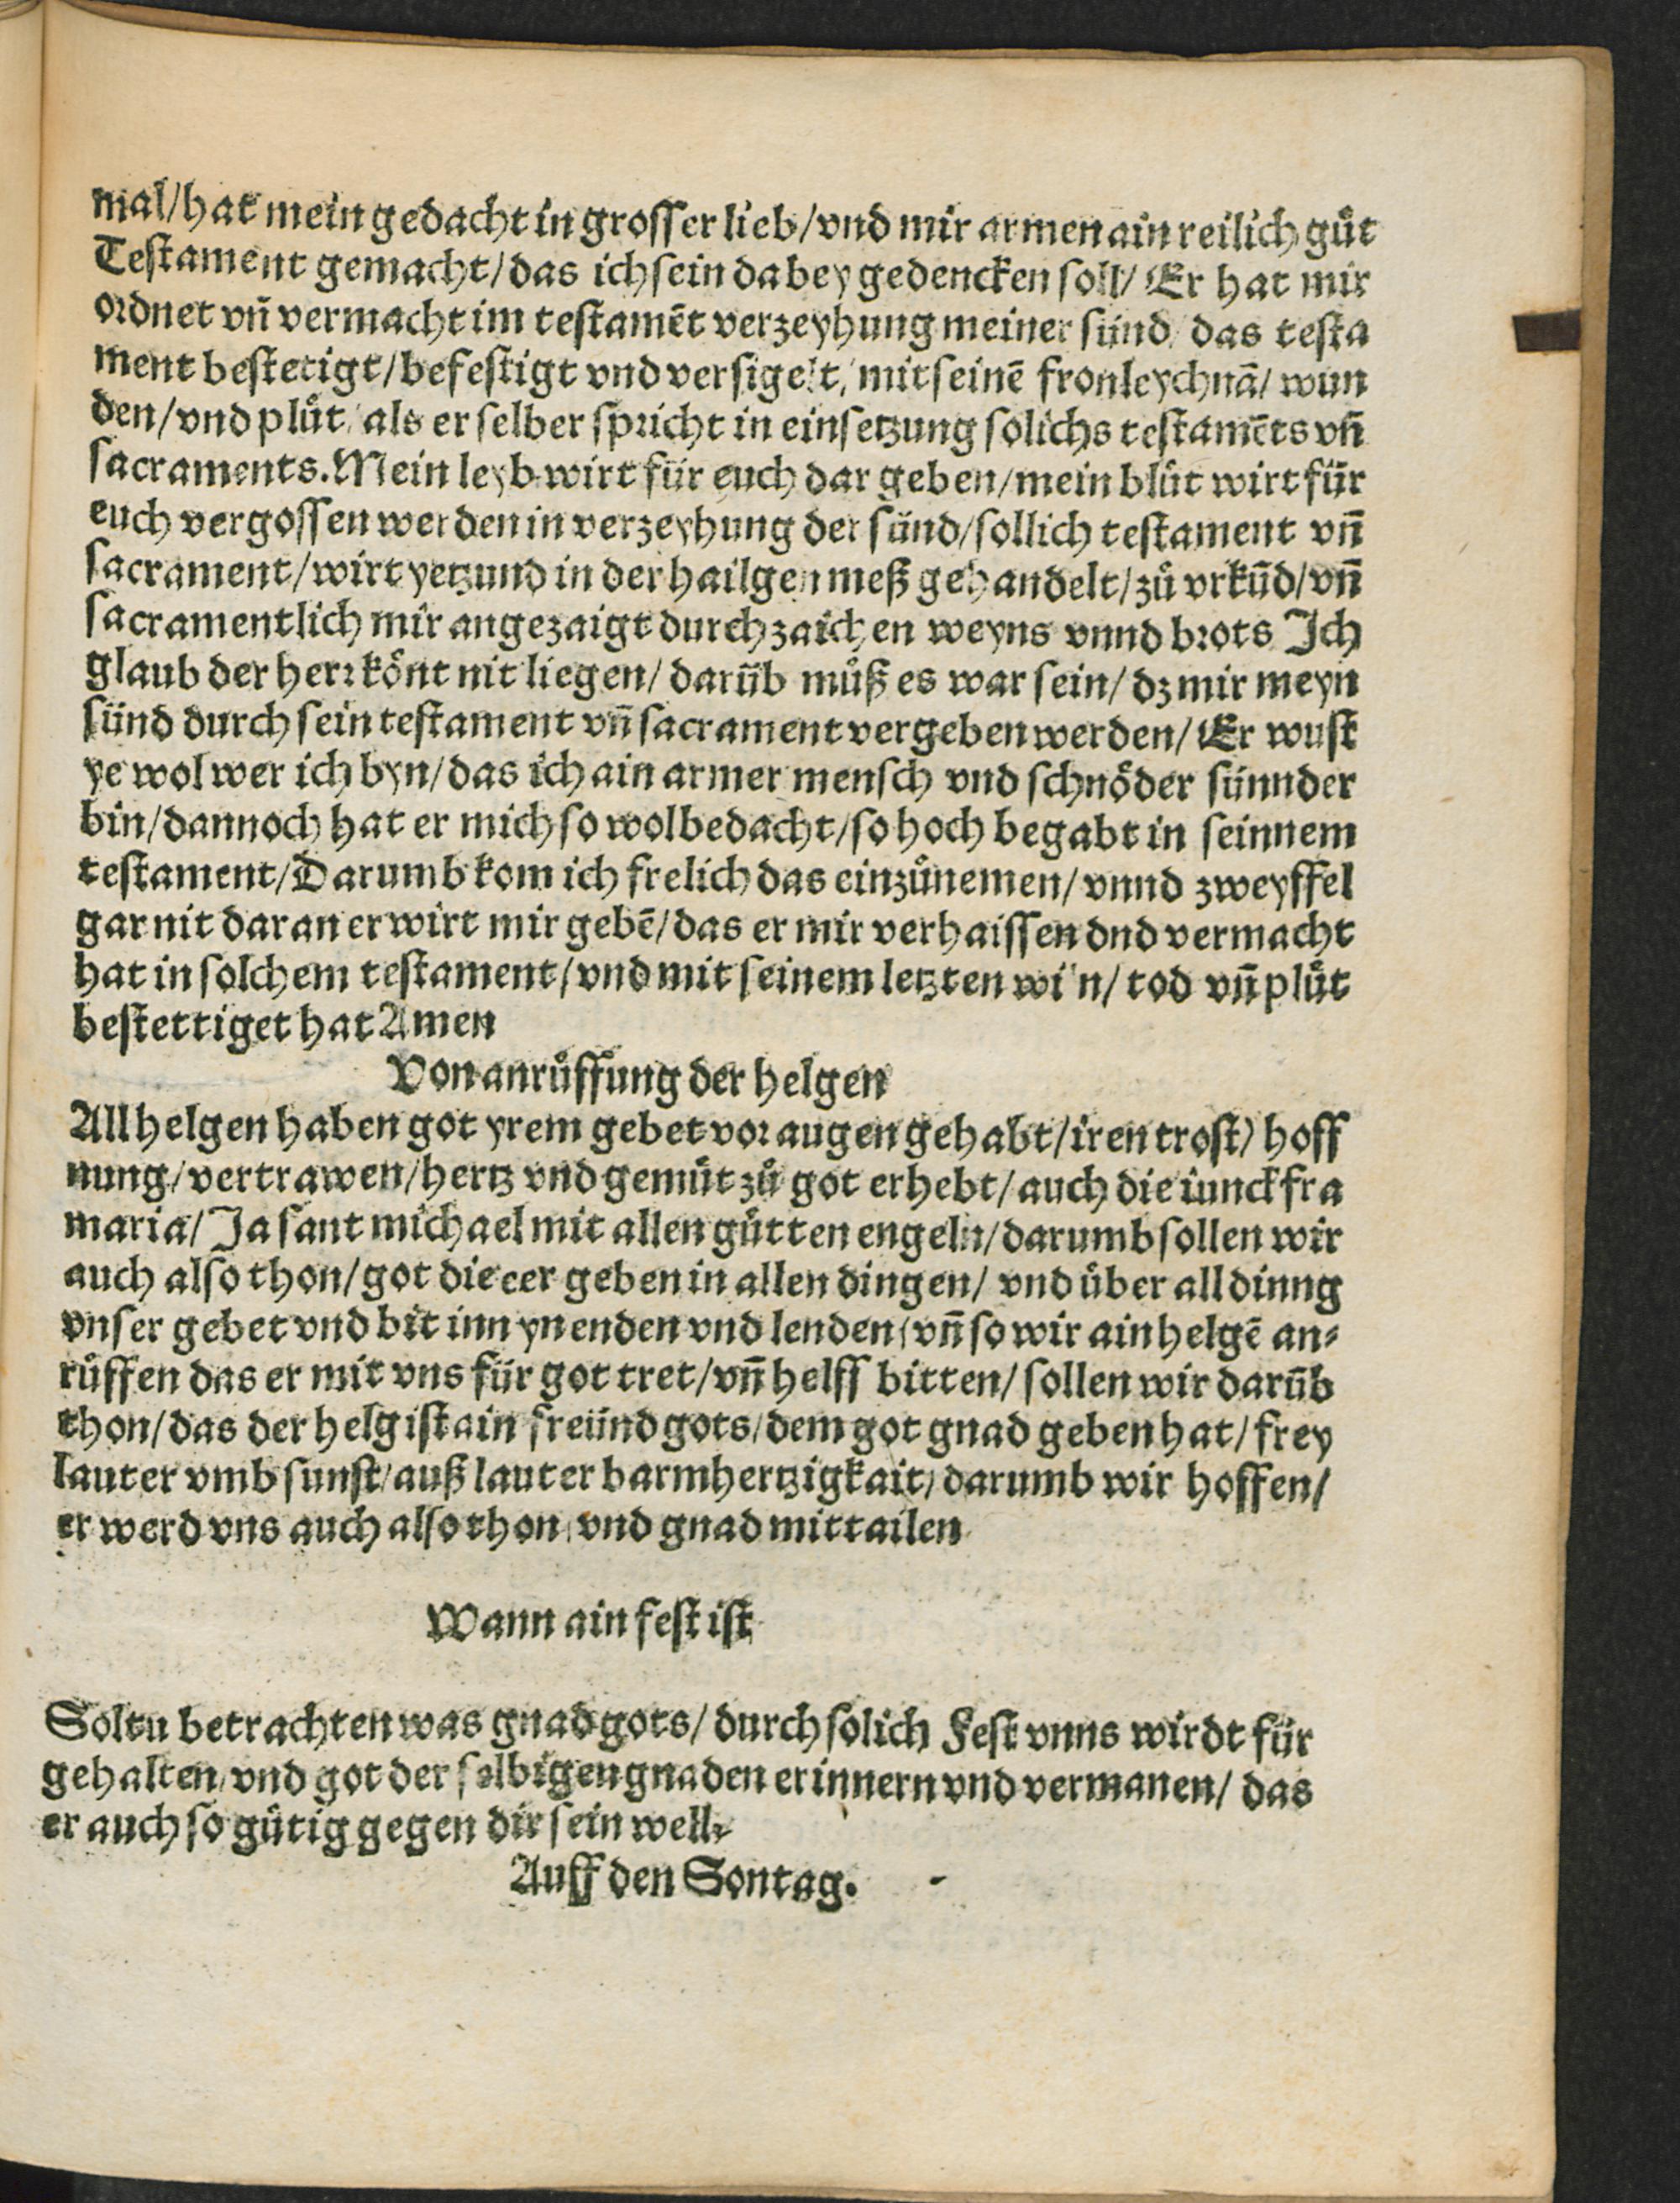 mal/hat mein gedacht in grosser lieb/vnd mir armen ain reilich gůt
Testament gemacht/das ich sein da bey gedencken soll/ Er hat mir
ordnet vñ vermacht im testamēt verzeyhung meiner sünd/ das testa
ment bestetigt/befestigt vnd versigelt/mit seinē fronleychnā/ wun
den/vnd plůt/als er selber spricht in einsetzung solichs testamēts vñ
sacraments.Mein leyb wirt für euch dar geben/mein blůt wirt für
euch vergossen werden in verzeyhung der sünd/sollich testament vñ
sacrament/wirt yetzund in der hailgen meß gehandelt/zů vrkūd/vñ
sacramentlich mir angezaigt durch zaichen weyns vnnd brots Jch
glaub der herr könt nit liegen/darūb můß es war sein/dz mir meyn
sünd durch sein testament vñ sacrament vergeben werden/ Er wust
ye wol wer ich byn/das ich ain armer mensch vnd schnöder sünnder
bin/dannoch hat er mich so wol bedacht/so hoch begabt in seinnem
testament/Darumb kom ich frelich das einzůnemen/vnnd zweyffel
gar nit daran er wirt mir gebē/das er mir verhaissen dnd vermacht
hat in solchem testament/vnd mit seinem letzten wi'n/tod vñ plůt
bestettiget hat Amen
Von anrůffung der helgen
All helgen haben got yrem gebet vor augen gehabt/iren trost/hoff
nung/vertrawen/hertz vnd gemůt zů got erhebt/auch die iunckfra
maria/ Ja sant michael mit allen gůtten engeln/darumb sollen wir
auch also thon/got die eer geben in allen dingen/ vnd über all dinng
vnser gebet vnd bit inn ynenden vnd lenden/vñ so wir ain helgē an⸗
růffen das er mit vns für got tret/vñ helff bitten/sollen wir darūb
thon/das der helg ist ain freünd gots/dem got gnad geben hat/frey
lauter vmb sunst/auß lauter barmhertzigkait/darumb wir hoffen/
er werd vns auch also thon/vnd gnad mittailen
Wann ain fest ist
Soltu betrachten was gnad gots/durch solich Fest vnns wirdt für
gehalten/vnd got der selbigen gnaden erinnern vnd vermanen/ das
er auch so gütig gegen dir sein well⸗
Auff den Sontag.